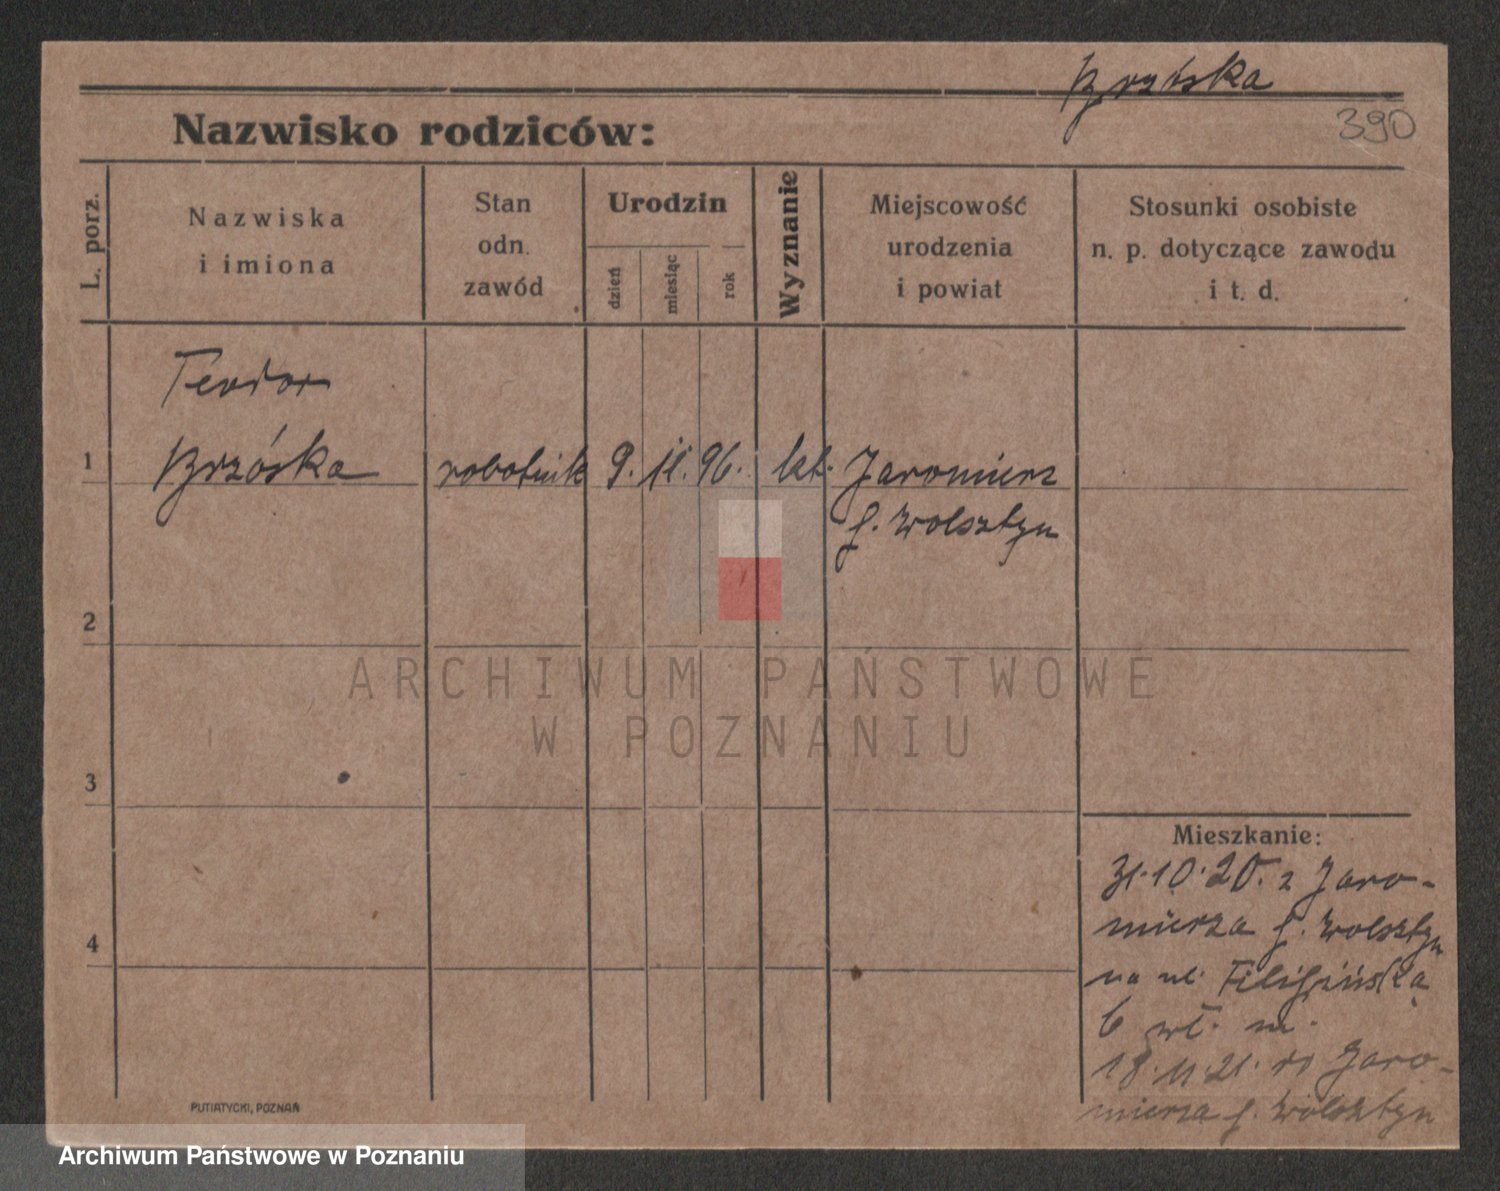 Brzóska
390
Nazwisko rodziców:
L. porz.
Nazwiska
i imiona
Stan
odn.
zawód
Urodzin
dzień
miesiąc
rok
Wyznanie
Miejscowość
urodzenia
i powiat
Stosunki osobiste
n. p. dotyczące zawodu
i t. d.
Teodor
1 Brzóska robotnik 9. 11. 96. kt. Jaromierz
p. Wolsztyn
2
3
4
ARCHIWUM PAŃSTWOWE
W POZNANIU
Mieszkanie:
31.10.20. z Jaro-
mierza p. Wolsztyn
na ul. Filipińską
6 wł. m.
18.11.21. do Jaro-
mierza p. Wolsztyn
PUTIATYCKI, POZNAŃ
Archiwum Państwowe w Poznaniu